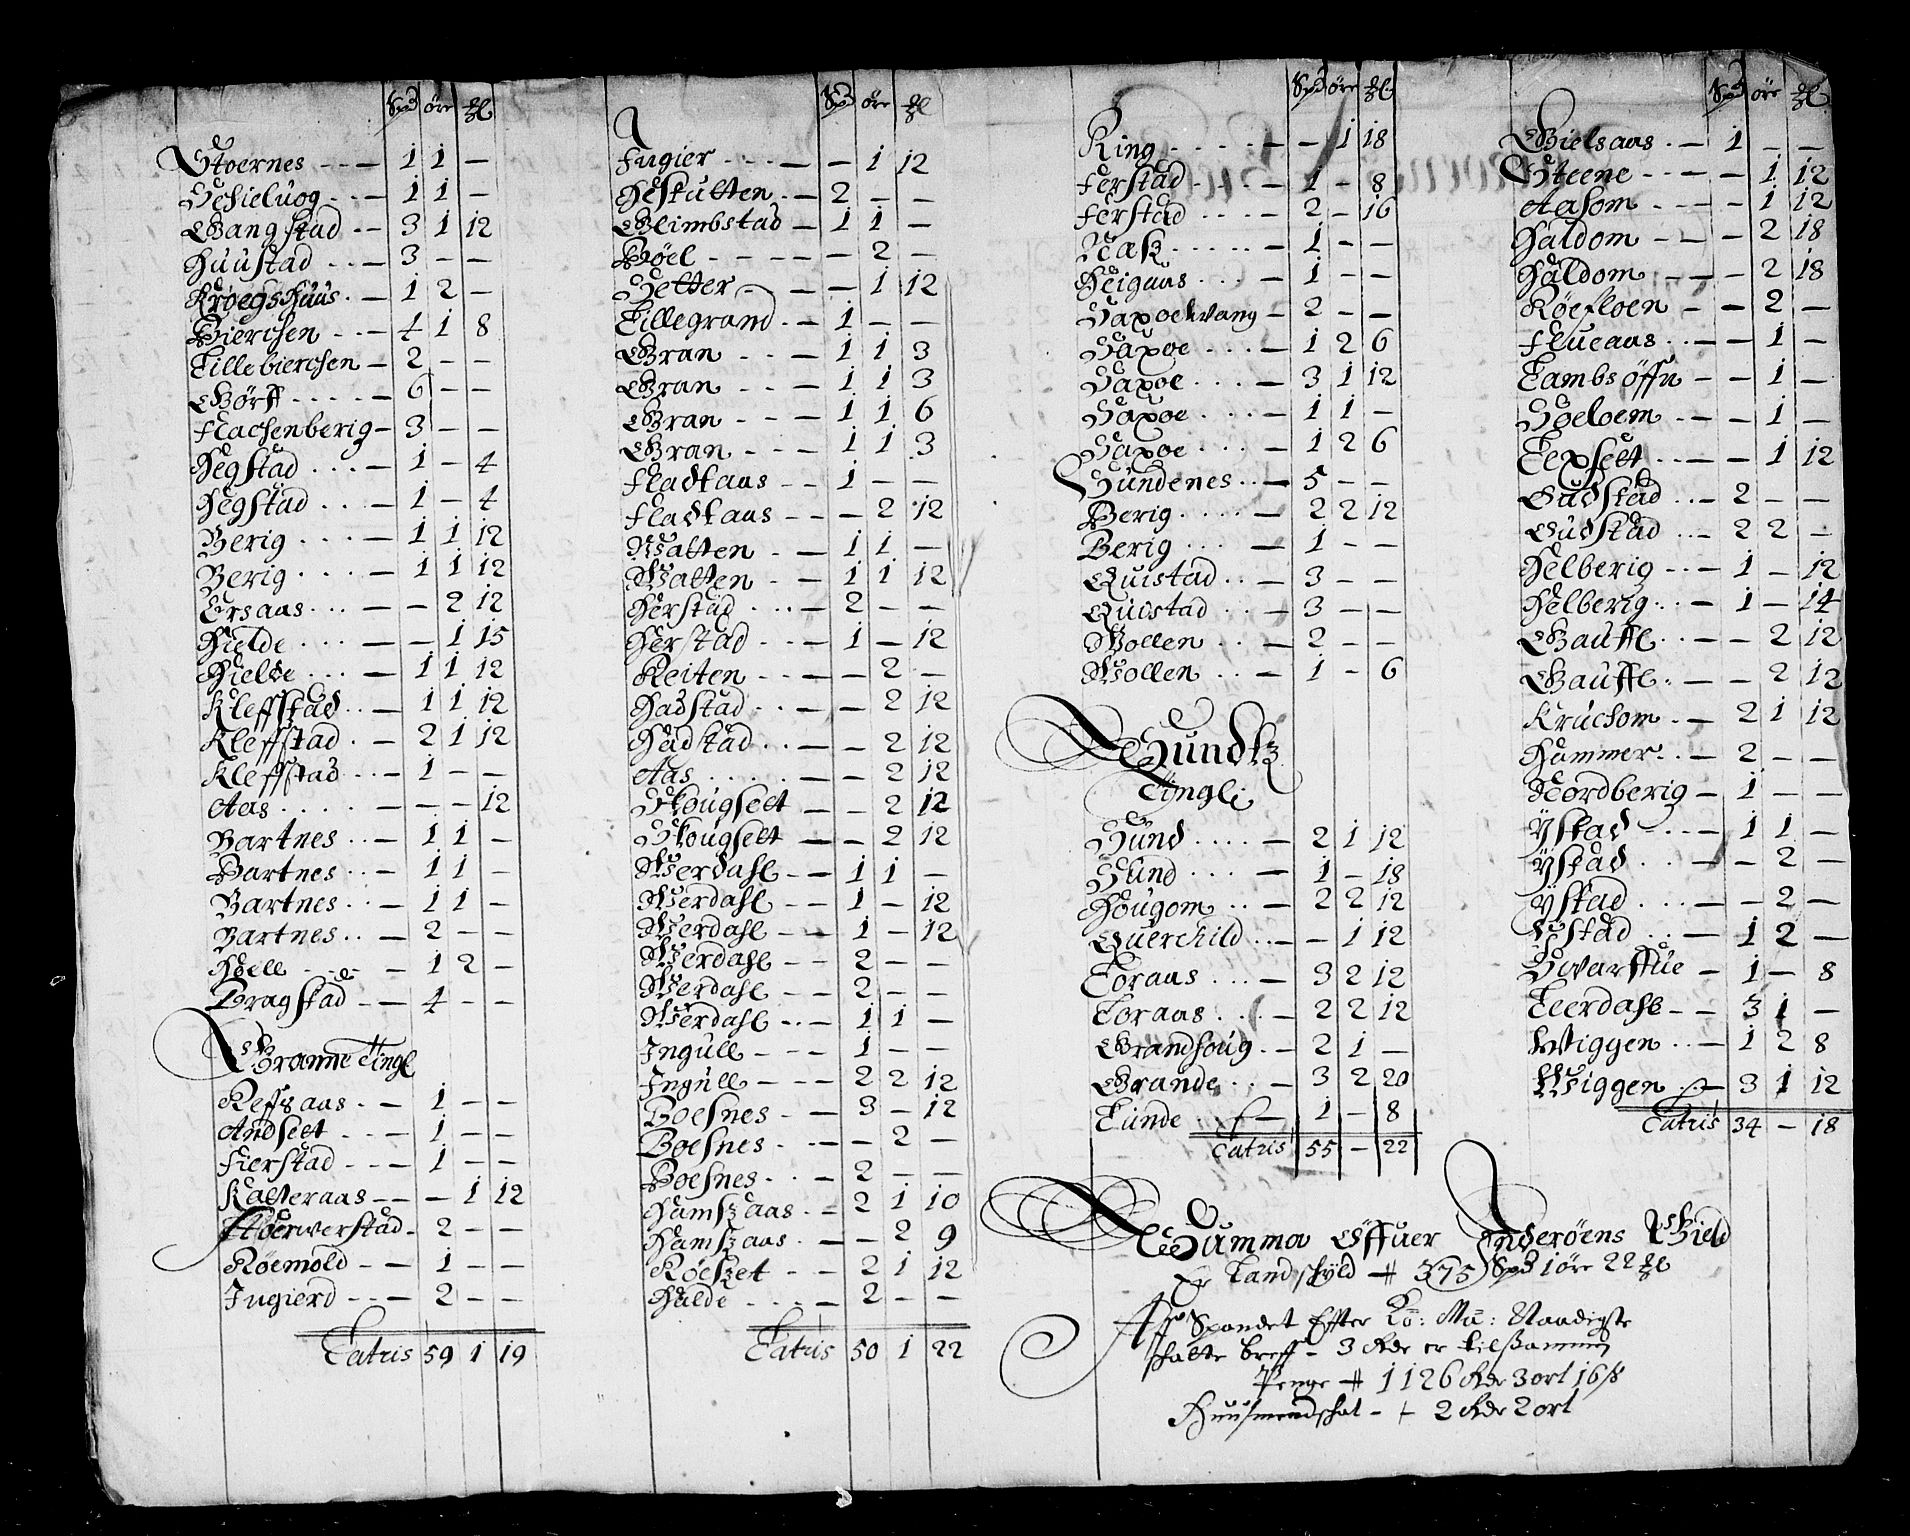 Spd øre ℔
Stoernes - - - 1 1 -
Schieluog - - - 1 1 -
Gangstad - - 3 1 12
Huustad - - - 3 - -
Krogshuus - - 1 2 -
Bierchen - - - 4 1 8
Lillebierchen - 2 - -
Gørff - - - - - 6 - -
Flachenberig - 3 - -
Hegstad - - - 1 - 4
Hegstad - - - 1 - 4
Berig - - - - 1 1 12
Berig - - - - 1 1 12
Ersaas - - - - 2 12
Hielde - - - - 1 15
Hielde - - - 1 1 12
Kleffstad - - 1 1 12
Kleffstad - - 2 1 12
Kleffstad - - 1 - -
Aas - - - - - - 12
Bartnes - - - 1 1 -
Bartnes - - - 1 1 -
Bartnes - - - 1 1 -
Bartnes - - - 2 - -
Hoell - - - - 1 2 -
Dragstad - - 4 - -
Granne Tingl
Reffsaas - - 1 - -
Andselt - - - 1 - -
Fierstad - - - 1 - -
Kalteraas - - - - 1 12
Høerwerstad - 2 - -
Røemold - - 1 - -
Ingierd - - - 2 - -
Latus 59 1 19
Spd øre ℔
Fugier - - - - - 1 12
Heskulten - - 2 - -
Glimbstad - 1 1 -
Bøel - - - - - 2 -
Setter - - - - 1 12
Lillegrand - - 1 - -
Gran - - - 1 1 3
Gran - - - 1 1 3
Gran - - - 1 1 6
Gran - - - 1 1 3
Fladkaas - - 1 - -
Fladkaas - - - - 2 12
Watten - - 1 1 -
Watten - - 1 1 12
Herstad - - - 2 - -
Herstad - - - 1 - 12
Reiten - - - - 2 -
Hadstad - - - - 2 12
Hadstad - - - - 2 12
Aas - - - - - 2 12
Skougselt - - 2 12
Skougselt - - 2 12
Werdahl - - 1 1 -
Werdahl - - 1 - 12
Werdahl - - 1 - 12
Werdahl - - 2 - -
Werdahl - - 2 - -
Werdahl - - 1 1 -
Ingull - - - 1 - -
Ingull - - - 2 2 12
Boesnes - - 3 - 12
Boesnes - - - - 2 -
Boesnes - - - 2 - -
Hamszaas - - 2 1 10
Hamszaas - - - 2 9
Røeszet - - 2 1 12
Halde - - - - 2 - -
Latus 50 1 22
Spd øre ℔
Ring - - - - - - 1 18
Ferstad - - - 1 - 8
Ferstad - - - 2 - 16
Nak - - - - - 1 - -
Heigaas - - - 1 - -
Saxoewang - 2 - -
Saxoe - - - 1 2 6
Saxoe - - - 3 1 12
Saxoe - - - 1 1 -
Saxoe - - - 1 2 6
Sundenes - - 5 - -
Berig - - - - 2 2 12
Berig - - - 1 - -
Quistad - - 3 - -
Quistad - - 3 - -
Wollen - - 2 - -
Wollen - - 1 - 6
Sundtz
Tingl:
Sund - - - - 2 1 12
Sund - - - - 1 - 18
Hougom - - 2 2 12
Querchild - - - 1 12
Loraas - - - 3 2 12
Loraas - - - 2 2 12
Grandhoug - - 2 1 -
Grande - - 3 2 20
Lunde - 1 - 8
Latus 55 - 22
Spd øre ℔
Gielsaas - - 1 - -
Steene - - - - 1 12
Aasom - - - - 1 12
Haldom - - - - 2 18
Haldom - - - - 2 18
Røefloen - - 2 -
Flueaas - - - - 1 -
Lambsøffn - - 1 -
Soeloem - - - 1 -
Lexselt - - - - 1 12
Gudstad - - 2 - -
Gudstad - - 2 2 -
Helberig - - 1 - 12
Helberig - - 1 - 14
Gauffl - - - - 2 12
Gauffl - - - 2 12
Kruchom - - 2 1 12
Hammer - - 2 - -
Nordberig - 1 - -
Ystad - - - 1 1 -
Ystad - - - - 2 -
Ystad - - - - 2 -
Ystad - - - 1 2 -
Swarstue - 1 - 8
Leerdahl - - 3 1 -
Wiggen - - 1 2 8
Wiggen - 3 1 12
Latus 34 - 18
Summa Offuer Inderøens Gield
Er Landskyld - 375 Spd 1 øre 22 ℔
Aff Spandet Effter Ko: Ma: Naadigste
schatte breff - 3 Rdr er tilsammen
Penge - 1126 Rdr 3 ort 16 s
Huusmendschat - 2 Rdr 2 ort